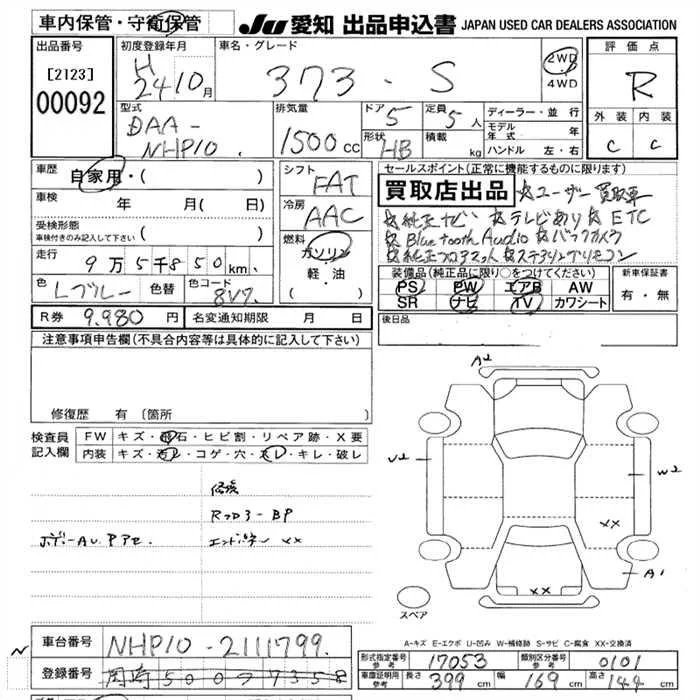 車内保管・守衛保管 JU 愛知 出品申込書 JAPAN USED CAR DEALERS ASSOCIATION
出品番号 初度登録年月 車名・グレード 2WD 評価点
[2123] H 24 10月 373 - S 4WD R
00092 型式 排気量 ドア 5 定員 5人 ディーラー・並行 外装 内装
DAA- モデル年式 年
NHP10 1500cc 形状 HB 積載 kg ハンドル 左・右 C C
車歴 自家用・( ) シフト FAT セールスポイント(正常に機能するものに限ります)
買取店出品 ☆ユーザー買取車
車検 年 月( 日) 冷房 AAC ☆純正ナビ ☆テレビあり ☆ETC
受検形態 ☆Bluetooth Audio ☆バックカメラ
車検付きのみ記入して下さい ( ) 燃料 ガソリン ☆純正フロアマット ☆ステアリングリモコン
走行 9万5千850km 軽・油 装備品(純正品に限り○をつけてください) 新車保証書
色 Lブルー 色替 色コード 8V7 PS PW エアB AW 有・無
SR ナビ TV カワシート
R券 9,980円 名変通知期限 月 日 後日品
注意事項申告欄(不具合内容等は具体的に記入して下さい)
修復歴 有〔箇所
A2
検査員 FW キズ・飛石・ヒビ割・リペア跡・X要
記入欄 内装 キズ・汚レ・コゲ・穴・スレ・キレ・破レ
U2 W2
修復
XX
ボディーAU.Pアセ. エンドパネル XX
XX A1
スペア
A-キズ E-エクボ U-凹み W-補修跡 S-サビ C-腐食 XX-交換済
車台番号 NHP10-2111799
形式指定番号 参考 17053 類別区分番号 参考 0101
登録番号 岡崎500 7358
車庫証明用 参考 長さ 399cm 幅 169cm 高さ 144cm